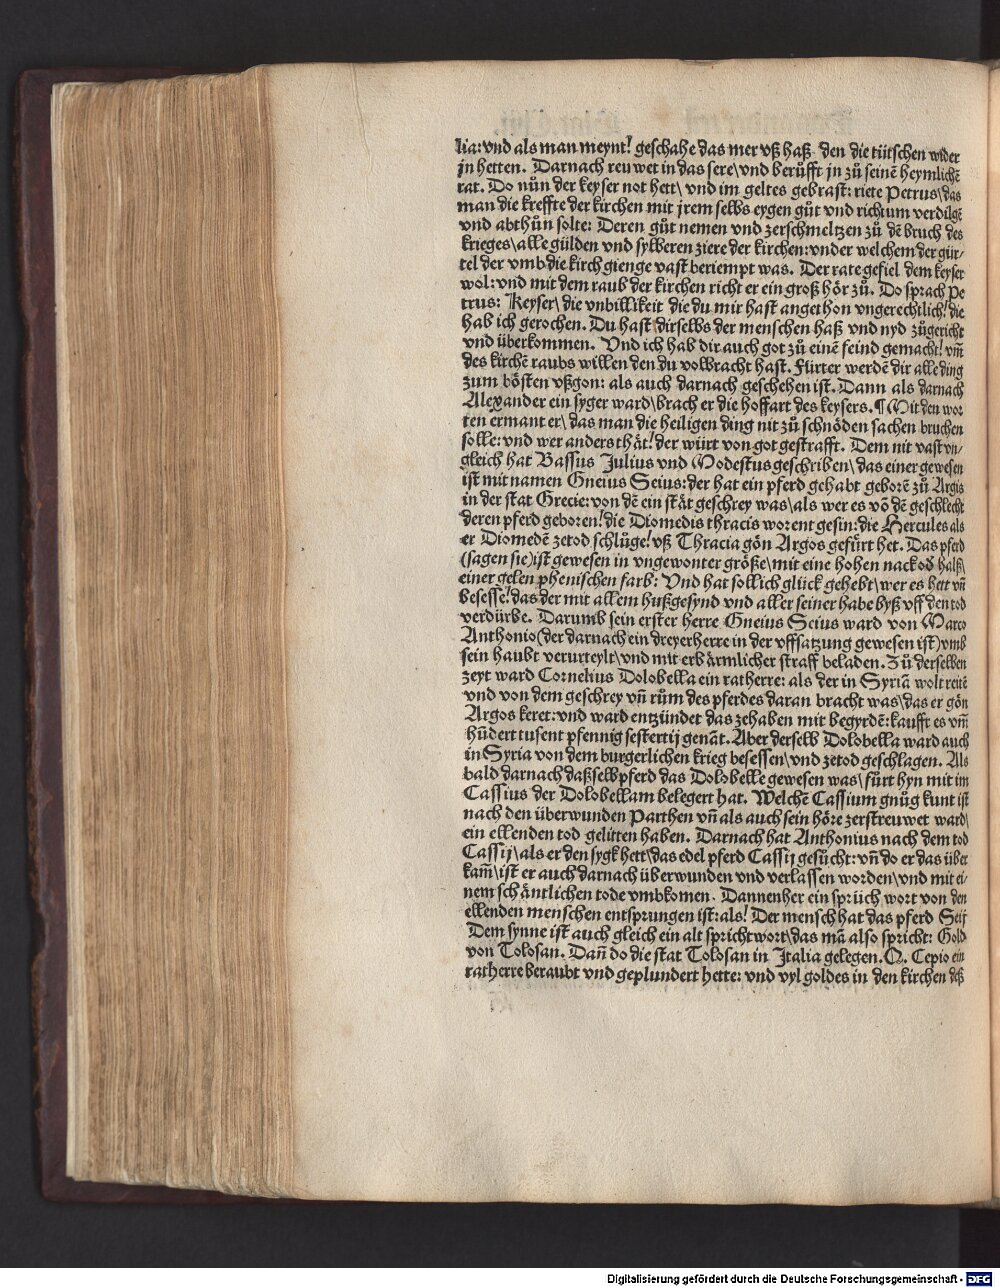 lia: vnd als man meynt! geschahe das mer vß haß den die tütschen wider
jn hetten. Darnach reuwet in das sere\ vnd berüfft jn zů seinē heymlichē
rat. Do nůn der keyser not hett\ vnd im geltes gebrast: riete Petrus\ das
man die kreffte der kirchen mit jrem selbs eygen gůt vnd richtum verdilgē
vnd abthůn solte: Deren gůt nemen vnd zerschmeltzen zů dē bruch des
krieges\ alle gülden vnd sylberen ziere der kirchen: vnder welchem der gür⸗
tel der vmb die kirch gienge vast beriempt was. Der rate gefiel dem keyser
wol: vnd mit dem raub der kirchen richt er ein groß hör zů. Do sprach Pe
trus: Keyser\ die vnbillikeit die du mir hast angethon vngerechtlich! die
hab ich gerochen. Du hast dir selbs der menschen haß vnd nyd zůgericht
vnd überkommen. Vnd ich hab dir auch got zů einē feind gemacht! vm̄
des kirchē raubs willen den du volbracht hast. Fürter werdē dir alle ding
zum bösten vßgon: als auch darnach geschehen ist. Dann als darnach
Alexander ein syger ward\ brach er die hoffart des keysers. ¶ Mit den wor
ten ermant er\ das man die heiligen ding nit zů schnöden sachen bruchen
solle: vnd wer anders thät! der würt von got gestrafft. Dem nit vast vn⸗
gleich hat Bassus Julius vnd Modestus geschriben\ das einer gewesen
ist mit namen Gneius Seius: der hat ein pferd gehabt geborē zů Argis
in der stat Grecie: von dē ein stät geschrey was\ als wer es vō dē geschlecht
deren pferd geboren! die Diomedis thracis worent gesin: die Hercules als
er Diomedē zetod schlůge! vß Thracia gön Argos gefürt het. Das pferd
(sagen sie) ist gewesen in vngewonter größe\ mit eine hohen nack od̄ halß\
einer gelen phenischen farb: Vnd hat sollich glück gehebt\ wer es hett vn̄
besesse! das der mit allem hußgesynd vnd aller seiner habe byß vff den tod
verdürbe. Darumb sein erster herre Gneius Seius ward von Marco
Anthonio (der darnach ein dreyerherre in der vffsatzung gewesen ist) vmb
sein haubt verurteylt\ vnd mit erbärmlicher straff beladen. Zů derselben
zeyt ward Cornelius Dolobella ein ratherre: als der in Syriā wolt reitē
vnd von dem geschrey vn̄ rům des pferdes daran bracht was\ das er gön
Argos keret: vnd ward entzündet das zehaben mit begyrdē: kaufft es vm̄
hūdert tusent pfennig sestertij genāt. Aber derselb Dolobella ward auch
in Syria von dem burgerlichen krieg besessen\ vnd zetod geschlagen. Als
bald darnach daßselb pferd das Dolobelle gewesen was\ fůrt hyn mit im
Cassius der Dolobellam belegert hat. Welchē Cassium gnůg kunt ist
nach den überwunden Parthen vn̄ als auch sein höre zerstreuwet ward\
ein ellenden tod gelitten haben. Darnach hat Anthonius nach dem tod
Cassij\ als er den sygk hett\ das edel pferd Cassij gesücht: vn̄ do er das über
kam̄\ ist er auch darnach überwunden vnd verlassen worden\ vnd mit ei⸗
nem schäntlichen tode vmbkomen. Dannenher ein sprüch wort von den
ellenden menschen entsprungen ist: als! Der mensch hat das pferd Seij
Dem synne ist auch gleich ein alt sprichtwort\ das mā also spricht: Gold
von Tolosan. Dan̄ do die stat Tolosan in Italia gelegen. Q. Cepio ein
ratherre beraubt vnd geplundert hette: vnd vyl goldes in den kirchen deß
Digitalisierung gefördert durch die Deutsche Forschungsgemeinschaft - DFG